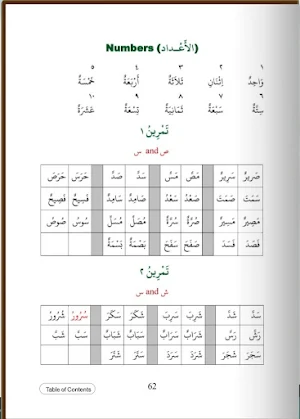 Numbers (الأَعْـدَاد)
١ ٢ ٣ ٤ ٥
وَاحِدٌ اِثْنَانِ ثَلَاثَةٌ أَرْبَعَةٌ خَمْسَةٌ
٦ ٧ ٨ ٩ ١٠
سِتَّةٌ سَبْعَةٌ ثَمَانِيَةٌ تِسْعَةٌ عَشَرَةٌ
تَمْرِينُ ١
ص and س
صَرِيرٌ سَرِيرٌ مَصَّ مَسَّ سَدَّ صَدَّ حَرَسَ حَرَصَ
سَمَتَ صَمَتَ صَعُدَ سَعُدَ صَامِدٌ سَامِدٌ فَسِيحٌ فَصِيحٌ
مَصِيرٌ مَسِيرٌ صُرَّةٌ سُرَّةٌ مُصَلٍّ مُسَلٍّ سُوسٌ صُوصٌ
فَصَدَ فَسَدَ صَفَحَ سَفَحَ بَصْمَةٌ بَسْمَةٌ
تَمْرِينُ ٢
ش and س
سَدَّ شَدَّ شَرِبَ سَرِبَ شَكَرَ سَكَرَ سُرُورٌ شُرُورٌ
رَشَّ رَسَّ شَرَابٌ سَرَابٌ شَبَابٌ سَبَابٌ سَبَّ شَبَّ
سَجَرَ شَجَرَ شَرَدَ سَرَدَ سَتَرَ شَتَرَ
Table of Contents
62